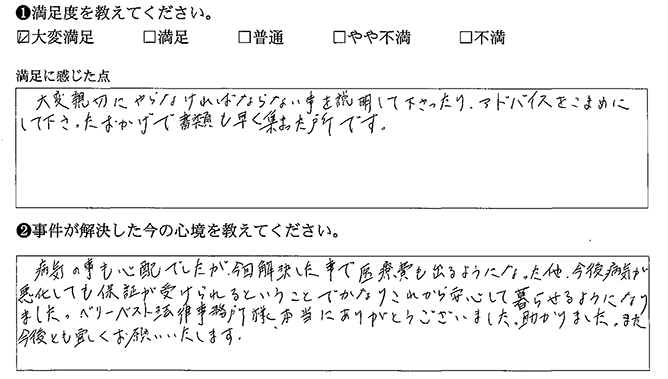 ❶満足度を教えてください。
☑大変満足 □満足 □普通 □やや不満 □不満
満足に感じた点
大変親切にやらなければならない事を説明して下さったり、アドバイスをこまめに
して下さったおかげで書類も早く集まった所です。
❷事件が解決した今の心境を教えてください。
病気の事も心配でしたが今回解決した事で医療費も出るようになった他、今後病気が
悪化しても保証が受けられるということでかなりこれから安心して暮らせるようになり
ました。ベリーベスト法律事務所様、本当にありがとうございました。助かりました。また
今後とも宜しくお願いいたします。